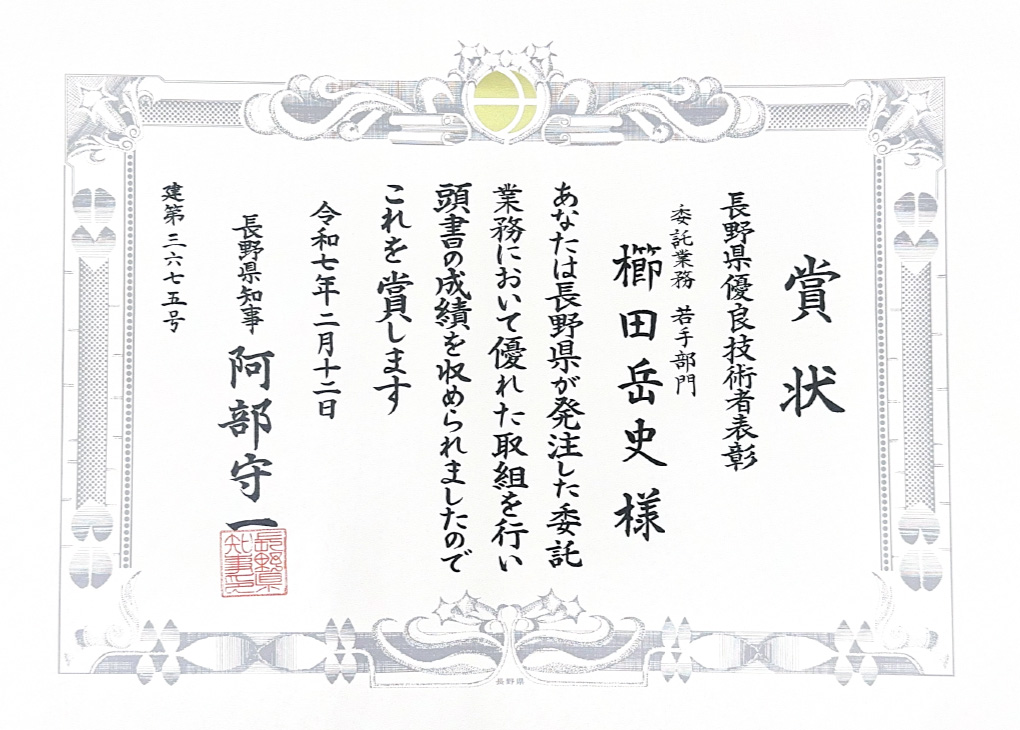 賞状
長野県優良技術者表彰
委託業務 若手部門
櫛田岳史様
あなたは長野県が発注した委託
業務において優れた取組を行い
頭書の成績を収められましたので
これを賞します
令和七年二月十二日
長野県知事 阿部守一
長野県
知事之印
建第三六七五号
長野県